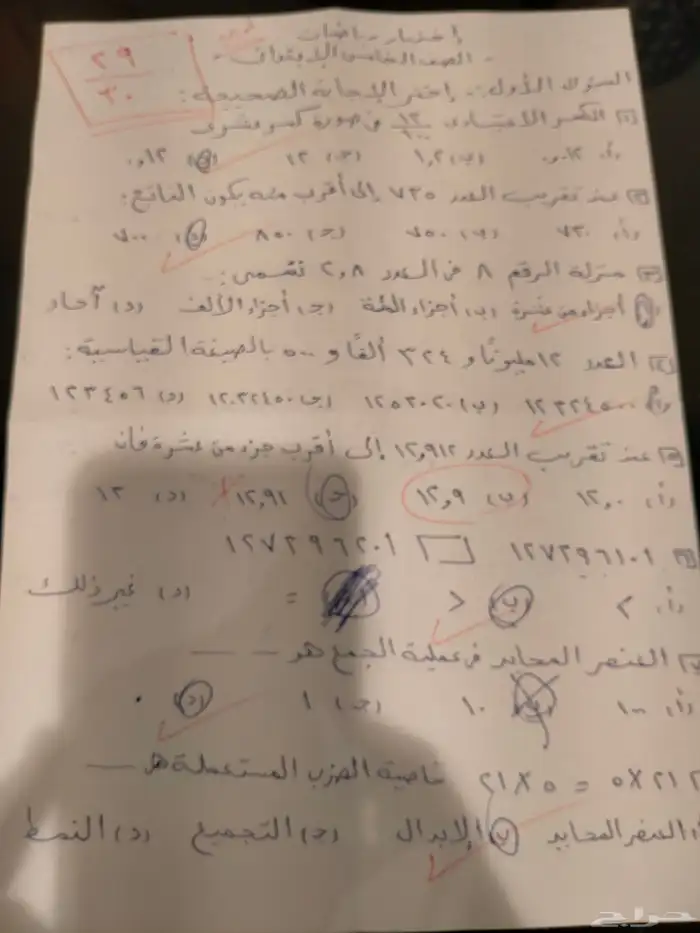 اختبار رياضات
الصف الخامس الابتدائي
٢٩
٣٠
السؤال الأول:- إختر الإجابة الصحيحة:
١ الكسر الاعتيادى ١٢/١٠٠ فى صورة كسر عشرى
ب) ١,٢ ج) ١٢ د) ٠,١٢
٢ عند تقريب العدد ٧٣٥ إلى أقرب مئه يكون الناتج:
أ) ٧٣٠ ب) ٧٥٠ ج) ٨٥٠ د) ٧٠٠
٣ منزلة الرقم ٨ فى العدد ٢,٨ تسمى:
أ) أجزاء من عشرة ب) أجزاء المئة ج) أجزاء الألف د) آحاد
٤ العدد ١٢ مليونًا و ٣٢٤ ألفًا و ٥٠٠ بالصيغة القياسية:
أ) ١٢٣٢٤٥٠٠ ب) ١٢٥٣٠٢٠٠ ج) ١٢٠٣٢٤٥٠٠ د) ١٢٣٤٥٦
٥ عند تقريب العدد ١٢,٩١٢ إلى أقرب جزء من عشرة فان
أ) ١٢,٠ ب) ١٢,٩ ج) ١٢,٩٢ د) ١٣
٦ ١٢٧٢٩٦١٠١ ١٢٧٢٩٦٢٠١
أ) > ب) < = د) غير ذلك
٧ العنصر المحايد فى عملية الجمع هو ـــ ـــ
أ) ١٠٠ ب) ١٠ ج) ١ د) ٠
٥X٢١ = ٢١X٥ خاصية الضرب المستعملة هى ـــ
الصفر المحايد ب) الإبدال ج) التجميع د) النمط
حراج